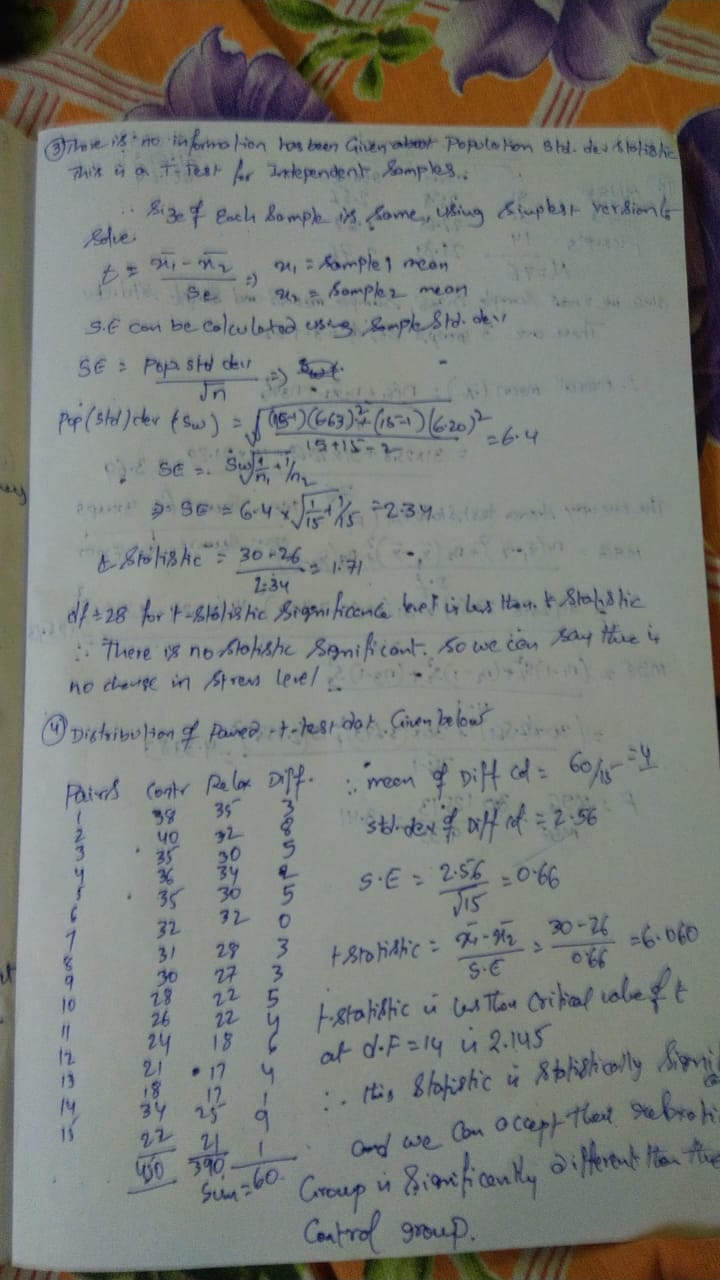 ③ There is no information has been Given about Population Std. dev statistic
This is a T-Test for Independent Samples.
∴ Size of Each Sample is Same, using Simplest version to
Solve.
t = x̄1 - x̄2 / Se ⇒ x1 = Sample1 mean
x2 = Sample2 mean
S.E can be Calculated using Sample Std. dev
SE = Pop. Std dev / √n ⇒
Pop(Std) dev (Sw) = √(15-1)(6.63)² + (15-1)(6.20)² / 15+15-2 = 6.4
∴ SE = Sw√1/n1 + 1/n2
⇒ SE = 6.4 × √1/15 + 1/15 = 2.34
t Statistic = 30-26 / 2.34 = 1.71
df = 28 for t-Statistic Significance level is less than t Statistic
∴ There is no Statistic Significant. So we can say there is
no change in Stress level
④ Distribution of Paired-t-test dat. Given below
Pairs Contr Relax Diff.
1 38 35 3
2 40 32 8
3 35 30 5
4 36 34 2
5 35 30 5
6 32 32 0
7 31 28 3
8 30 27 3
9 28 22 5
10 26 22 4
11 24 18 6
12 21 17 4
13 18 17 1
14 34 25 9
15 22 21 1
450 390
Sum = 60.
∴ mean of Diff cd = 60/15 = 4
std. dev of Diff cd = 2.56
S.E = 2.56 / √15 = 0.66
t statistic = x̄1 - x̄2 / S.E = 30-26 / 0.66 = 6.060
t-statistic is less than Critical value of t
at d.F = 14 is 2.145
∴ this Statistic is Statistically
and we can accept that
Group is Significantly different than the
Control group.